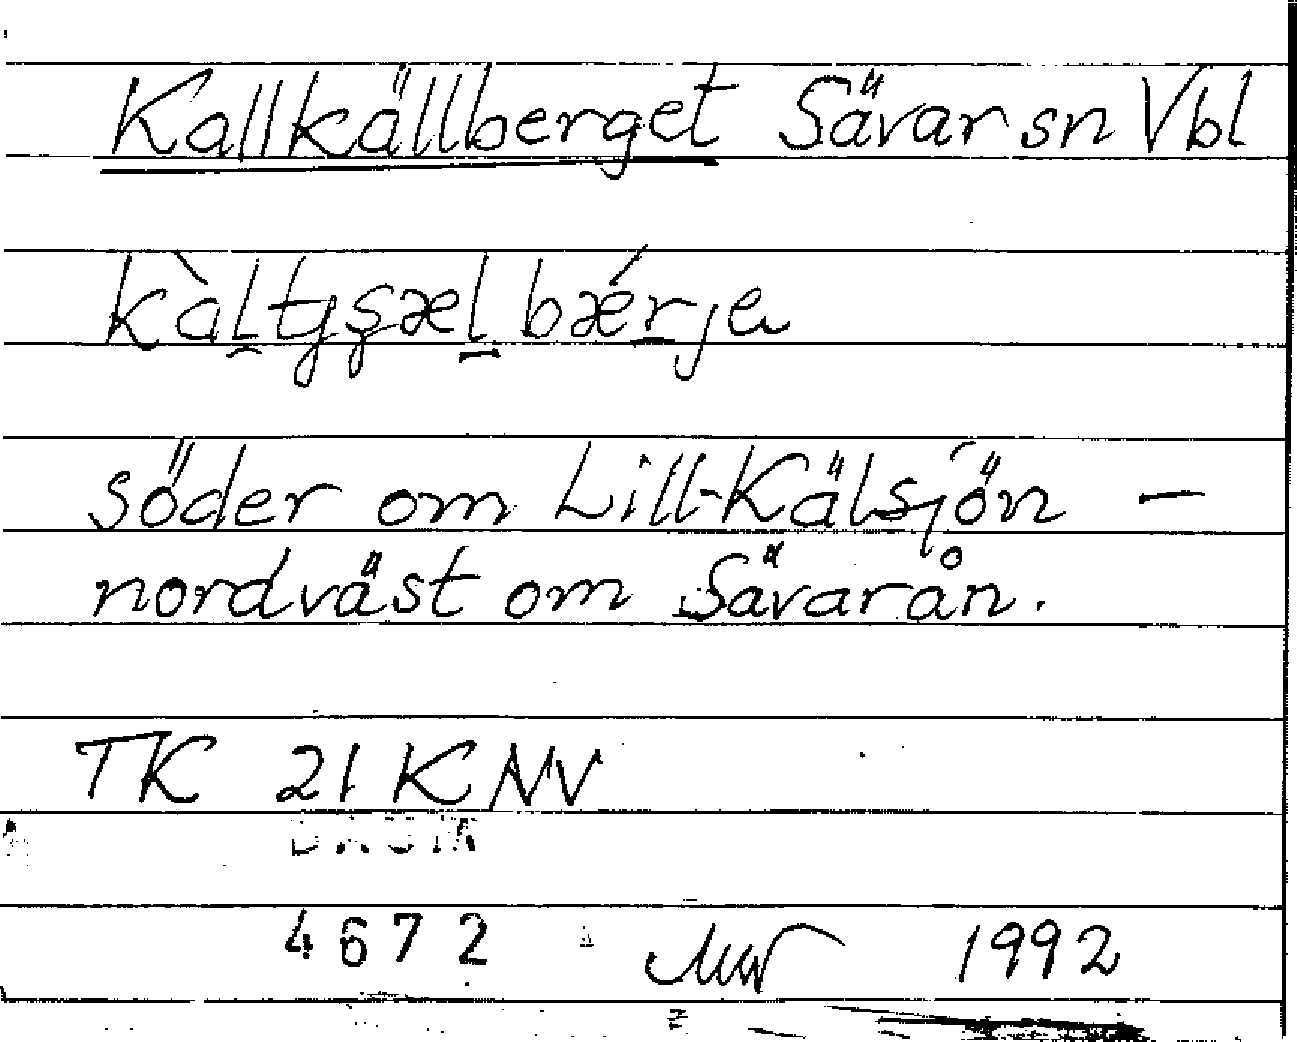 Kallkällberget Sävar sn Vbl
kàltjşæl bǽrje
söder om Lill-Kälsjön –
nordväst om Sävarån.
TK 21 K NV
4672 1992